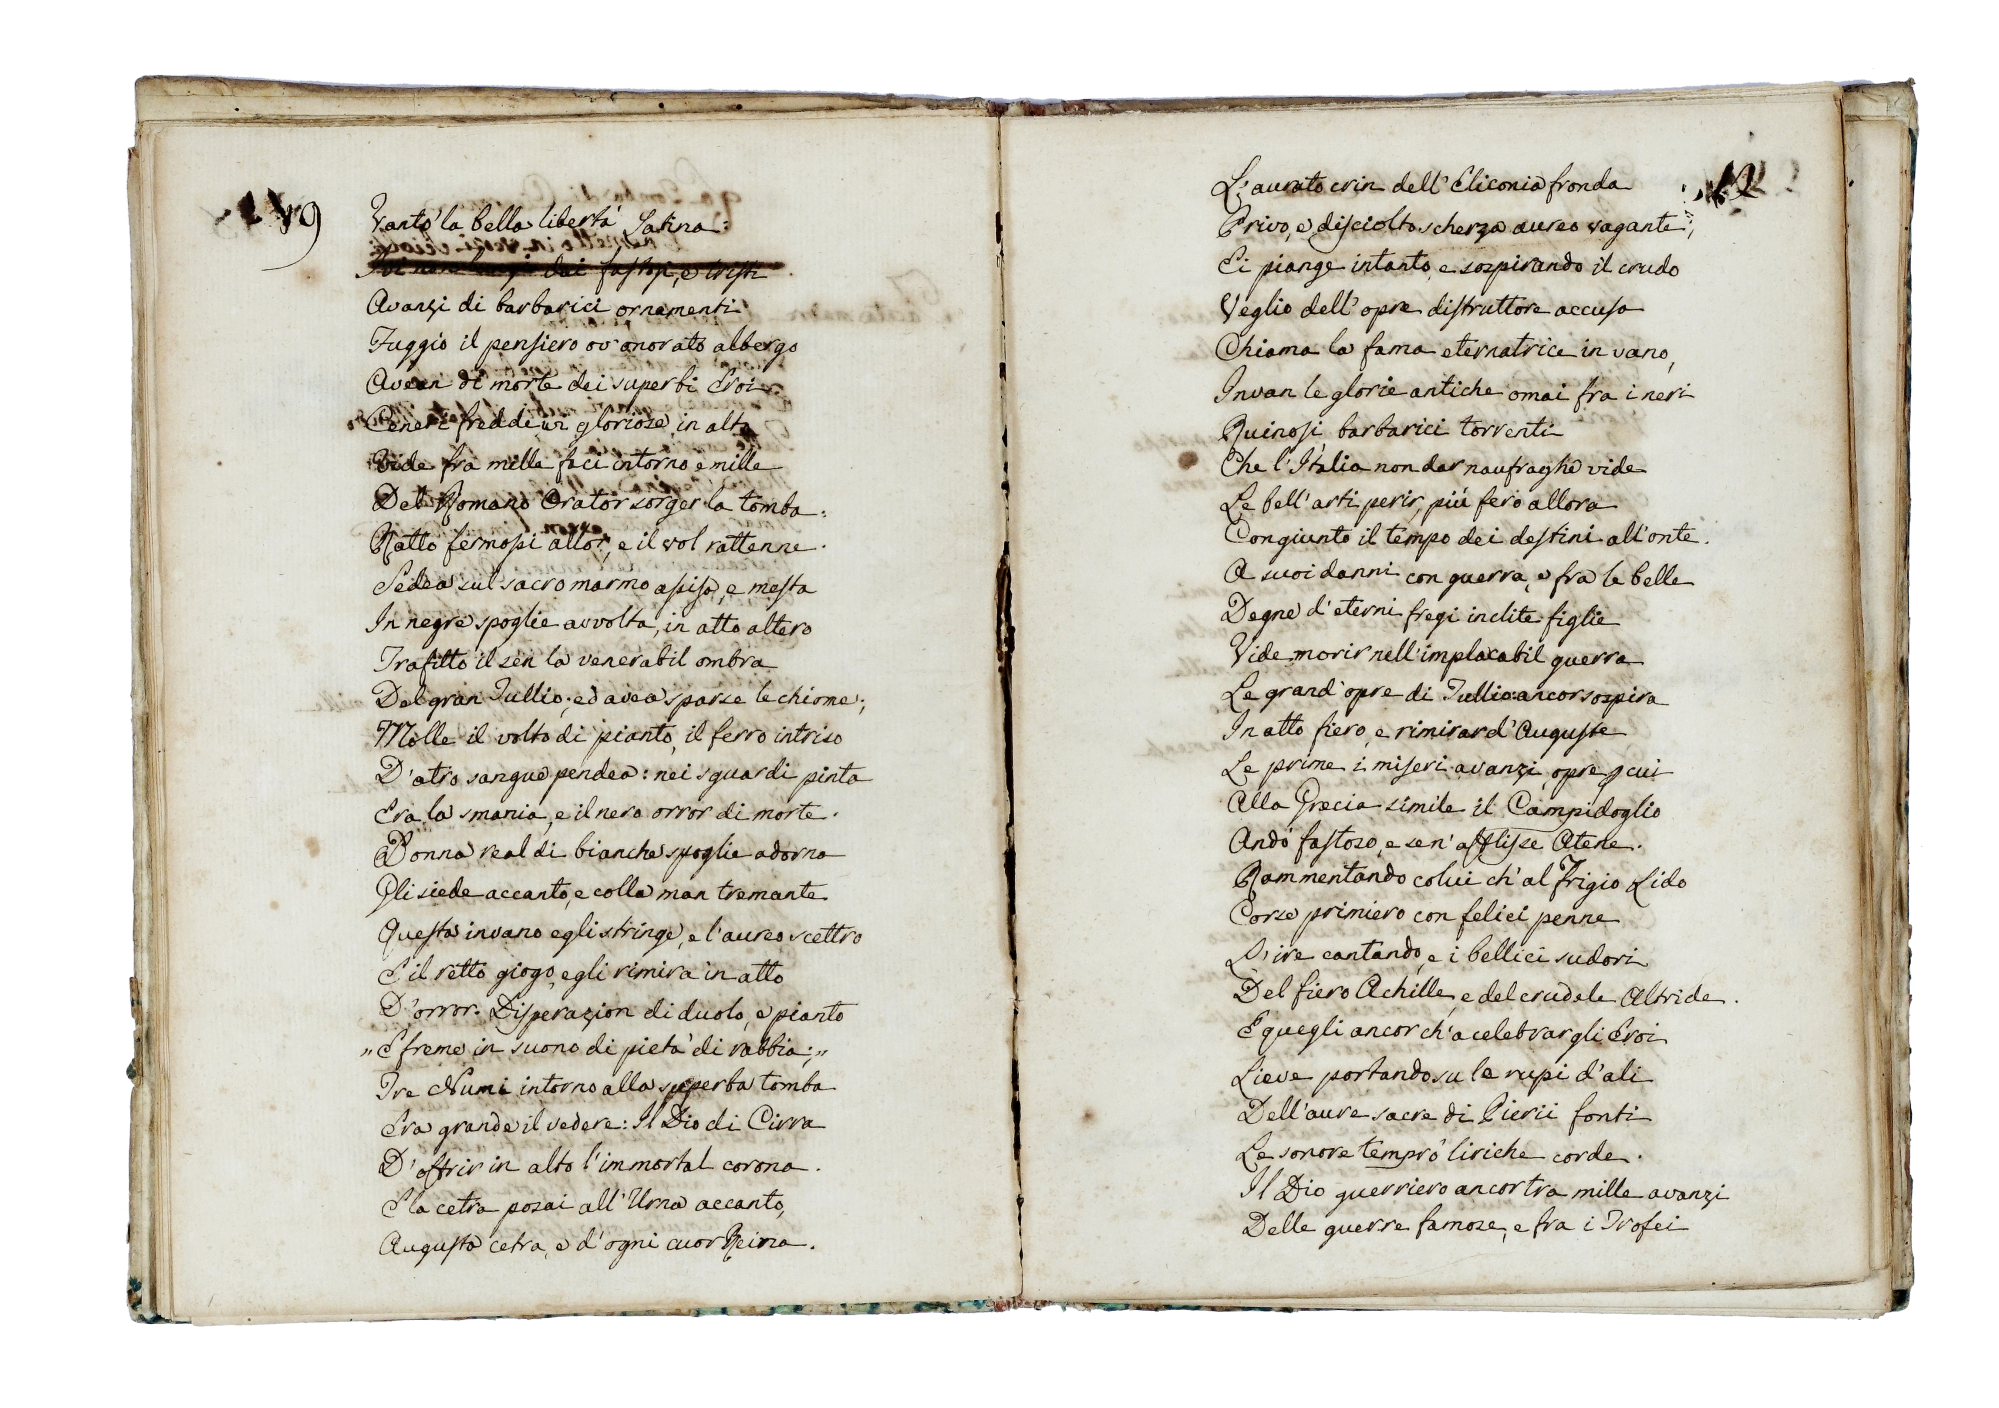 9
Vantò la bella libertà Latina:
dai fastosi, e tristi
Avanzi di barbarici ornamenti
Fuggio il pensiero ov'onorato albergo
Avean di morte dei superbi Eroi
Ceneri freddi, gloriose, in alto
Vide fra mille faci intorno e mille
Del Romano Orator sorger la tomba:
Ratto fermossi allor, e il vol rattenne.
Sedea sul sacro marmo assisa, e mesta
In negre spoglie avvolta, in atto altero
Trafitto il sen la venerabil ombra
Del gran Tullio; ed avea sparse le chiome;
Molle il volto di pianto, il ferro intriso
D'atro sangue pendea: nei sguardi pinta
Era la smania, e il nero orror di morte.
Donna real di bianche spoglie adorna
Gli siede accanto, e colla man tremante
Questa invano egli stringe, e l'aureo scettro
E il retto giogo, egli rimira in atto
D'orror. Disperazion di duolo, e pianto
„E freme in suono di pietà di rabbia;„
Tre Numi intorno alla superba tomba
Era grande il vedere: Il Dio di Cirra
D'offrir in alto l'immortal corona.
E la cetra posai all'Urna accanto,
Augusta cetra, e d'ogni cuor Reina.
L'aurato crin dell'Eliconia fronda
Privo, e disciolto scherza aureo vagante;
Ei piange intanto, e sospirando il crudo
Veglio dell'opre distruttore accusa
Chiama la fama eternatrice in vano,
Invan le glorie antiche omai fra i neri
Ruinosi barbarici torrenti
Che l'Italia non dar naufraghe vide
Le bell'arti perir, più fero allora
Congiunto il tempo dei destini all'onte.
A suoi danni con guerra, e fra le belle
Degne d'eterni fregi inclite figlie
Vide morir nell'implacabil guerra
Le grand'opre di Tullio: ancor sospira
In atto fiero, e rimirar d'Auguste
Le prime i miseri avanzi, opre cui
Alla Grecia simile il Campidoglio
Andò fastoso, e sen'afflisse Atene.
Rammentando colui ch'al Frigio Lido
Corse primiero con felici penne
L'ire cantando, e i bellici sudori
Del fiero Achille, e del crudele Altride.
E quegli ancor ch'a celebrar gli Eroi
Lieve portando su le rupi d'ali
Dell'aure sacre di Pierii fonti
Le sonore temprò liriche corde.
Il Dio guerriero ancor tra mille avanzi
Delle guerre famose, e fra i Trofei